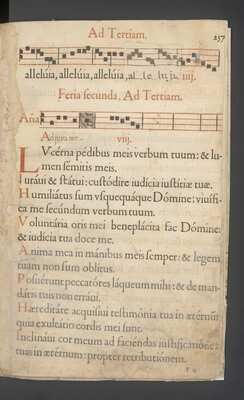 Ad Tertiam.
237
allelúia, allelúia, allelúia, al le lu ia iiij.
Feria secunda, Ad Tertiam.
Aña.
Adiuva me. viij.
LVcérna pédibus meis verbum tuum: & lu-
men sémitis meis.
Iuráui & státui: custódire iudícia iustítiæ tuæ.
Humiliátus sum vsquequáque Dómine: viuífi-
ca me secúndum verbum tuum.
Voluntária oris mei beneplácita fac Dómine:
& iudícia tua doce me.
Anima mea in mánibus meis semper: & legem
tuam non sum oblítus.
Posuérunt peccatóres láqueum mihi: & de man-
dátis tuis non erráui.
Hæreditáte acquisíui testimónia tua in ætérnũ:
quia exultátio cordis mei sunt.
Inclináui cor meum ad faciéndas iustificatiónes
tuas in ætérnum: propter retributiónem.